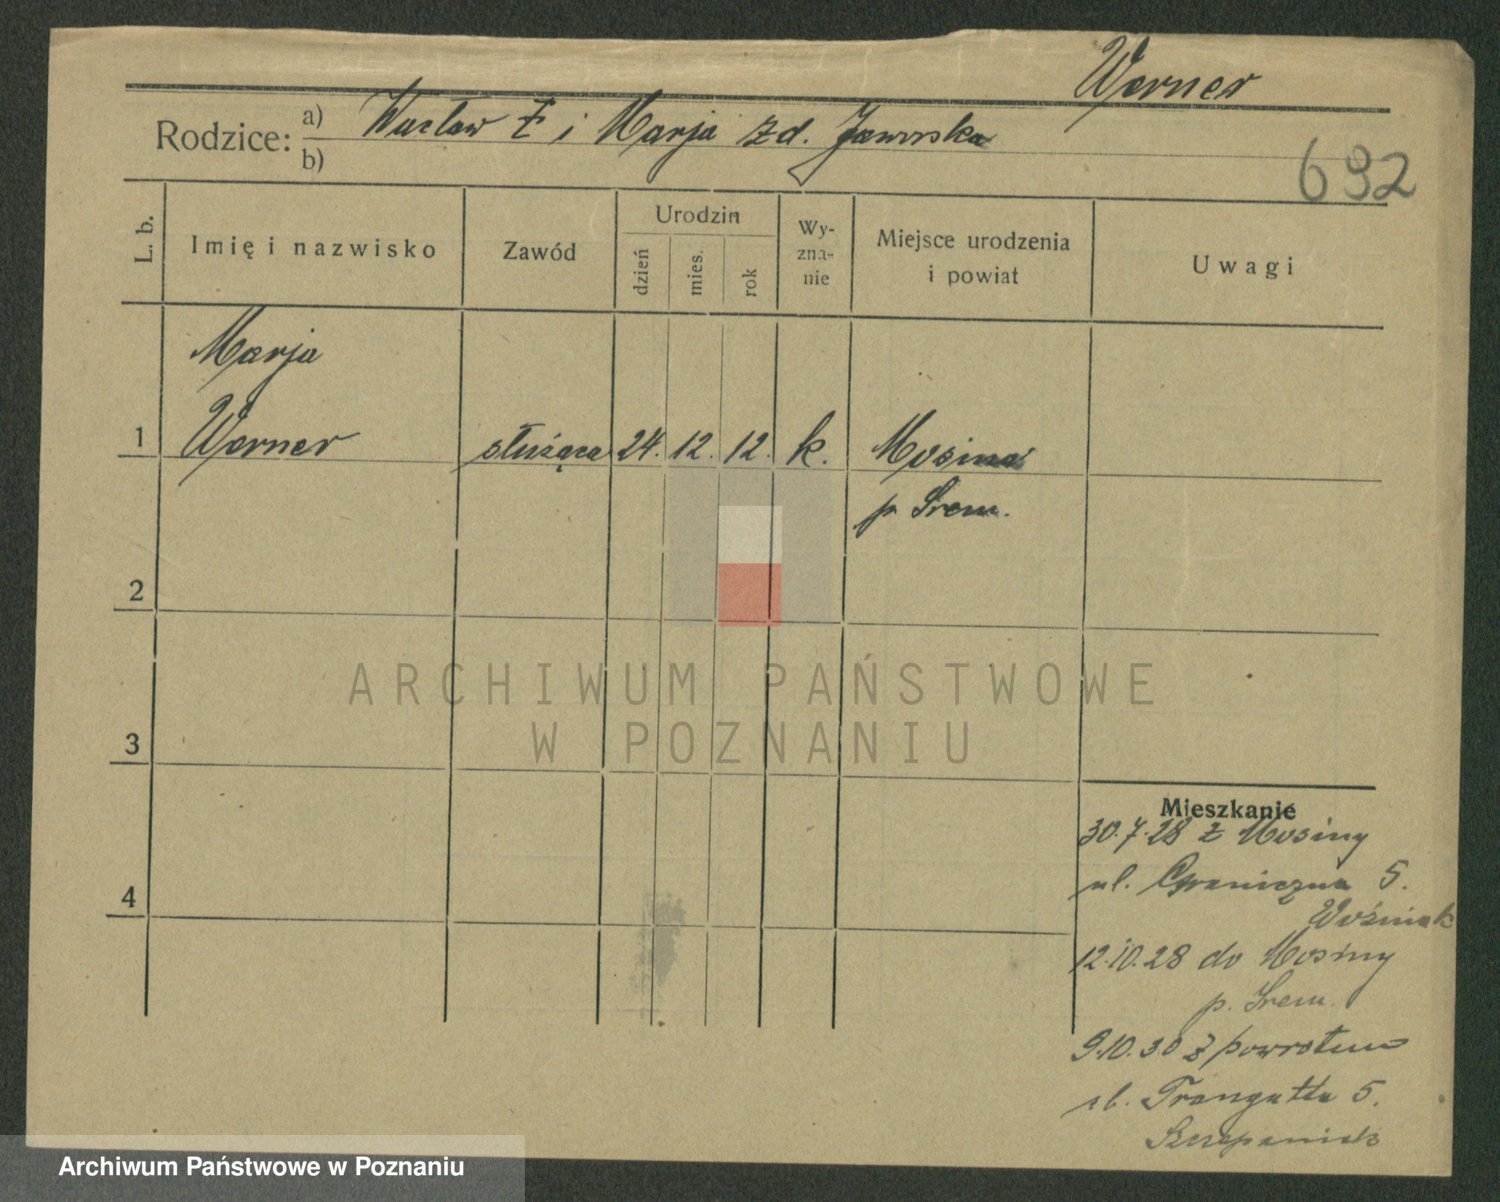 Werner
Rodzice: a) Wacław Ł i Marja z d. Jaworska
b)
692
L. b. Imię i nazwisko Zawód Urodzin dzień mies. rok Wyznanie Miejsce urodzenia i powiat Uwagi
Marja
1 Werner służąca 24. 12. 12. k. Mosina
p Śrem.
2
3
4
Mieszkanie
30.7.28 z Mosiny
ul. Graniczna 5.
Woźniak
12.10.28 do Mosiny
p. Śrem.
9.10.30 z powrotem
ul. Traugutta 5.
Szczepaniak
ARCHIWUM PAŃSTWOWE
W POZNANIU
Archiwum Państwowe w Poznaniu